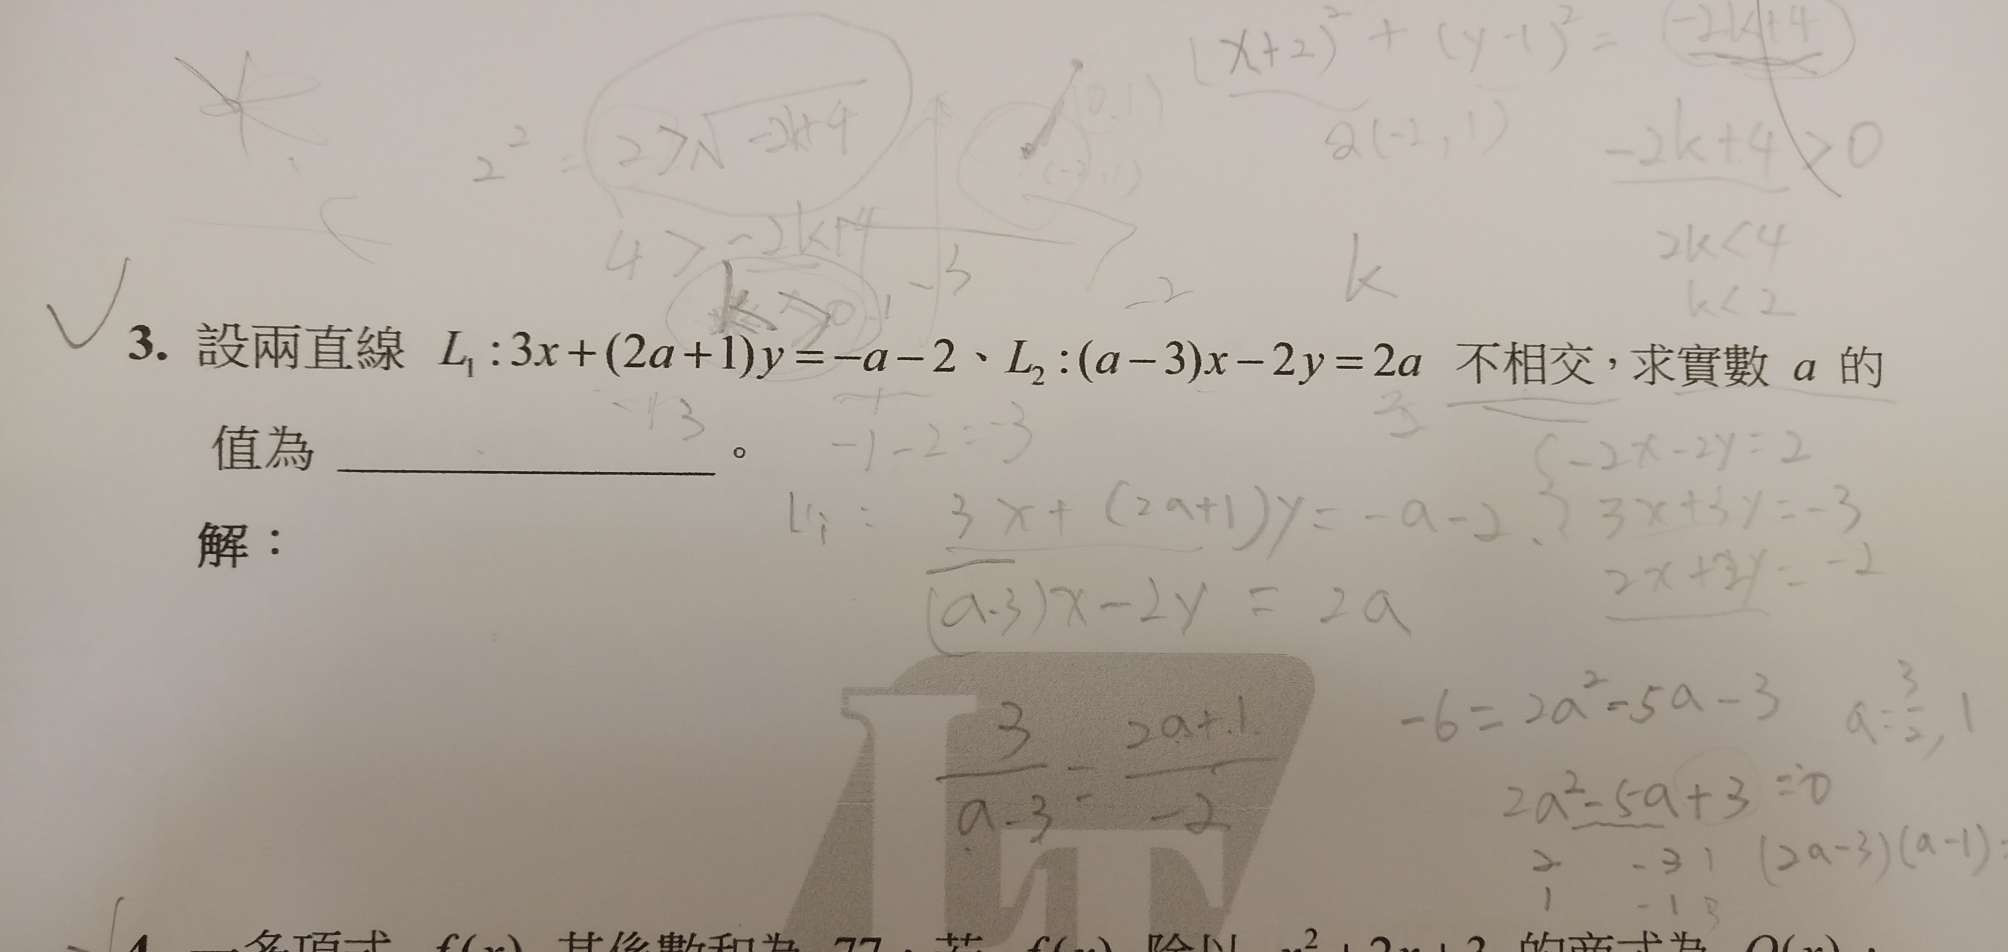 (x+2)² + (y-1)² = -2k+4
2² = 2>√-2k+4 (0,1) Q(-2,1) -2k+4>0
4 > -2k+4 2k<4
k>0 -3 -2 k k<2
3. 設兩直線 L₁:3x+(2a+1)y=-a-2、L₂:(a-3)x-2y=2a 不相交,求實數 a 的
3 -1-2=-3 3 -2x-2y=2
值為 ________。
L₁: 3x+(2a+1)y=-a-2 3x+3y=-3
解:
(a-3)x-2y = 2a 2x+2y=-2
-6=2a²-5a-3 a=3/2, 1
3/(a-3) = (2a+1)/-2 2a²-5a+3=0
2 -3 (2a-3)(a-1)=
1 -1
4. 一多項式 f(x) 其係數和為 77,若 f(x) 除以 x²+2x+3 的商式為 Q(x),